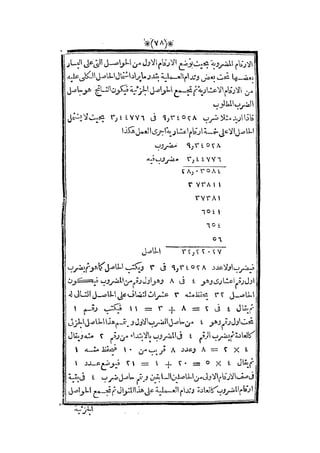 *(٧٨)*
الارقام المضروبة بحيث توضع الارقام الاول من الحواصل التى على اليسار
بعضها تحت بعض وتدام العملية بقدر ما يراد استعمال الحاصل الكلى عليه
من الارقام الاعشارية ثم تجمع الحواصل الجزئية فيكون الناتج هو حاصل
الضرب المطلوب
فاذا اريد مثلا ضرب ٩٫٣٤٥٢٨ فى ٣٫٤٤٧٧٦ بحيث لا يشتمل
الحاصل الا على خمسة ارقام اعشارية اجرى العمل هكذا
٩٫٣٤٥٢٨ مضروب
٣٫٤٤٧٧٦ مضروب فيه
٢٨٫٠٣٥٨٤
٣٧٣٨١١
٣٧٣٨١
٦٥٤١
٦٥٤
٥٦
٣٢٫٢٢٠٢٧ الحاصل
فيضرب اولا عدد ٩٫٣٤٥٢٨ فى ٣ ويكتب الحاصل كما هو ثم يضرب
اول رقم اعشارى وهو ٤ فى ٨ وهو اول رقم من المضروب فيكون
الحاصل ٣٢ يحفظ منه ٣ عشرات لتضاف على الحاصل التالى له
ثم يقال ٤ فى ٢ = ٨ + ٣ = ١١ فيكتب رقم ١
تحت اول رقم وهو ٤ من حاصل الضرب الاول ويتمم هذا الحاصل الجزئى
كالعادة ثم يضرب الرقم ٤ فى المضروب بالابتداء من رقم ٢ منه ويقال
٤ × ٢ = ٨ وعدد ٨ قريب من ١٠ فيحفظ منه ١
ثم يقال ٤ × ٥ = ٢٠ + ١ = ٢١ فيوضع عدد ١
فى صف الارقام الاولى من الحاصلين السابقين ويتم حاصل ضرب ٤ فى بقية
ارقام المضروب كالعادة وتدام العملية على هذا المنوال ثم تجمع الحواصل
الجزئية